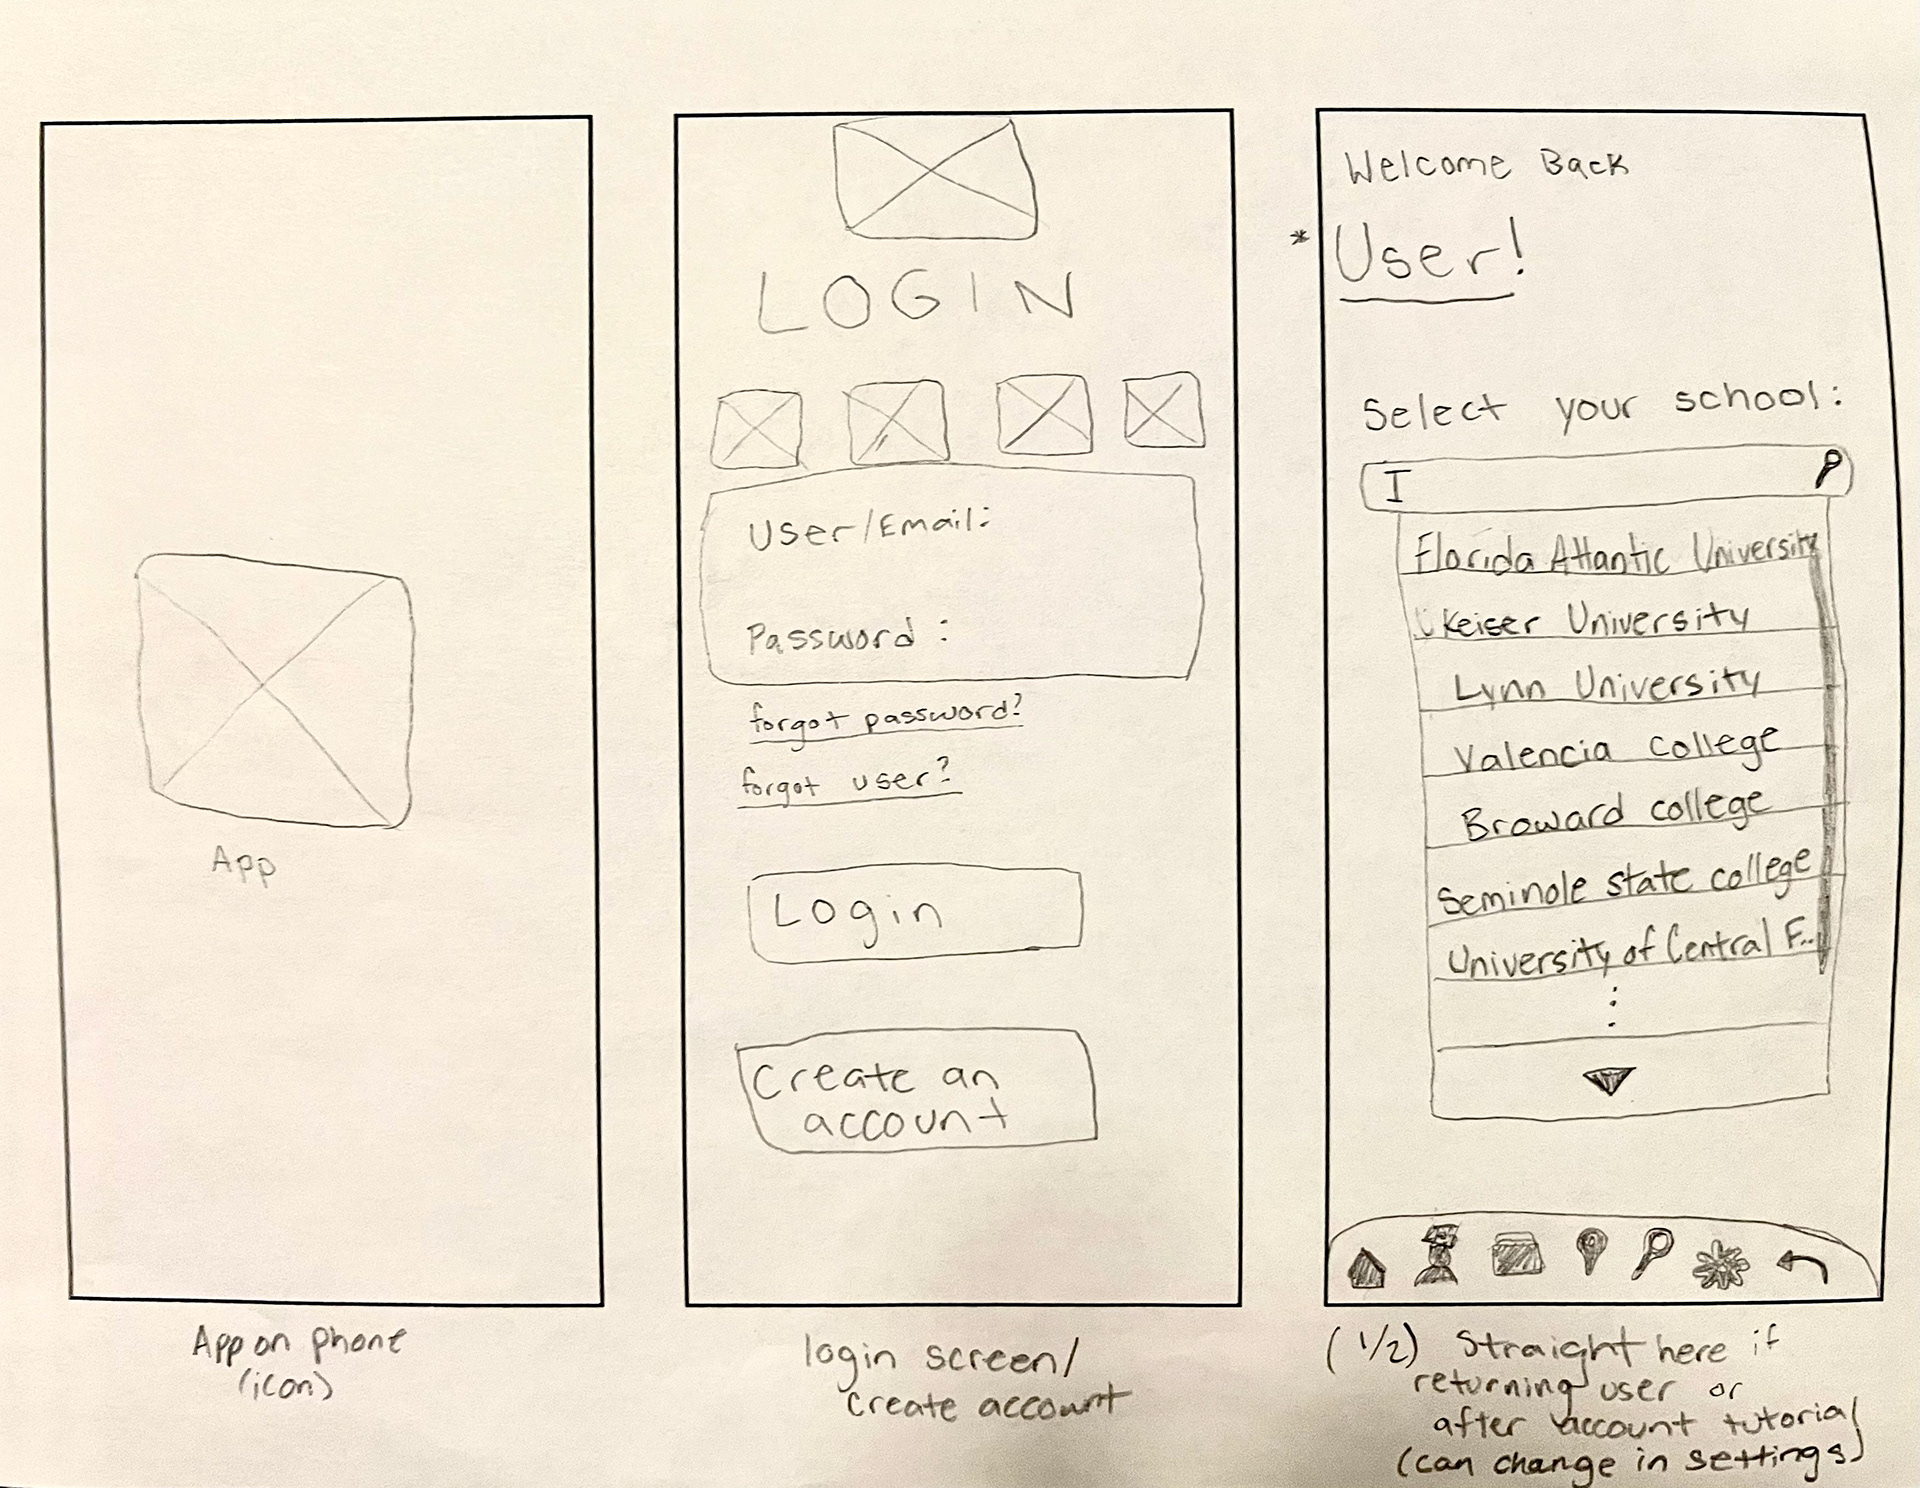 App
App on phone
(icon)
LOGIN
User/Email:
Password :
forgot password?
forgot user?
Login
Create an
account
login screen/
create account
Welcome Back
* User!
Select your school:
I
Florida Atlantic University
Keiser University
Lynn University
Valencia college
Broward college
Seminole state college
University of Central F...
(1/2) Straight here if
returning user or
after account tutorial
(can change in settings)